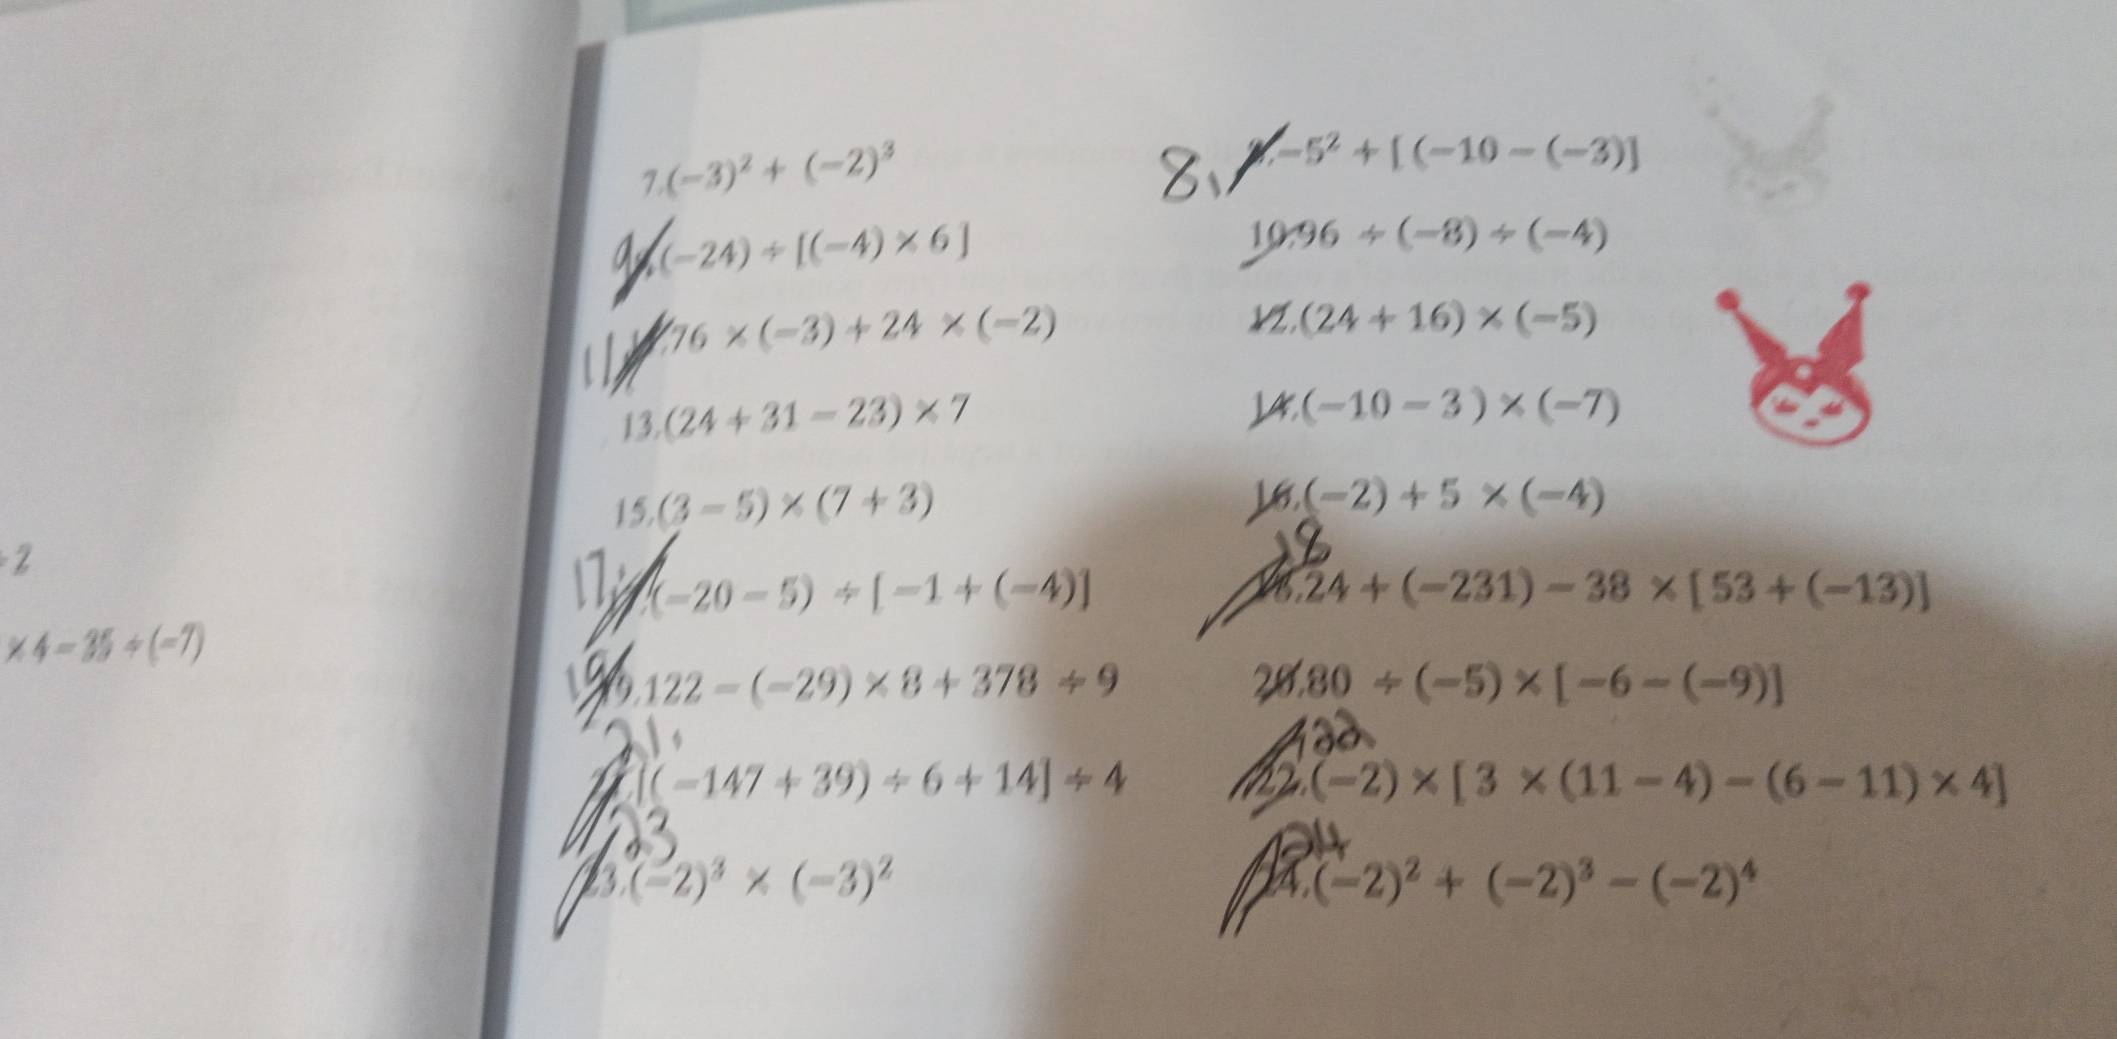 7.(−3)² + (−2)³
8. −5² + [(−10 − (−3)]
9. (−24) ÷ [(−4) × 6]
10.96 ÷ (−8) ÷ (−4)
11. 76 × (−3) + 24 × (−2)
12.(24 + 16) × (−5)
13.(24 + 31 − 23) × 7
14.(−10 − 3) × (−7)
15.(3 − 5) × (7 + 3)
16.(−2) + 5 × (−4)
17. (−20 − 5) ÷ [−1 + (−4)]
18 24 + (−231) − 38 × [53 + (−13)]
19 122 − (−29) × 8 + 378 ÷ 9
20.80 ÷ (−5) × [−6 − (−9)]
21. [(−147 + 39) ÷ 6 + 14] ÷ 4
22 22.(−2) × [3 × (11 − 4) − (6 − 11) × 4]
23 23.(−2)³ × (−3)²
24 24.(−2)² + (−2)³ − (−2)⁴
2
× 4 − 35 ÷ (−7)